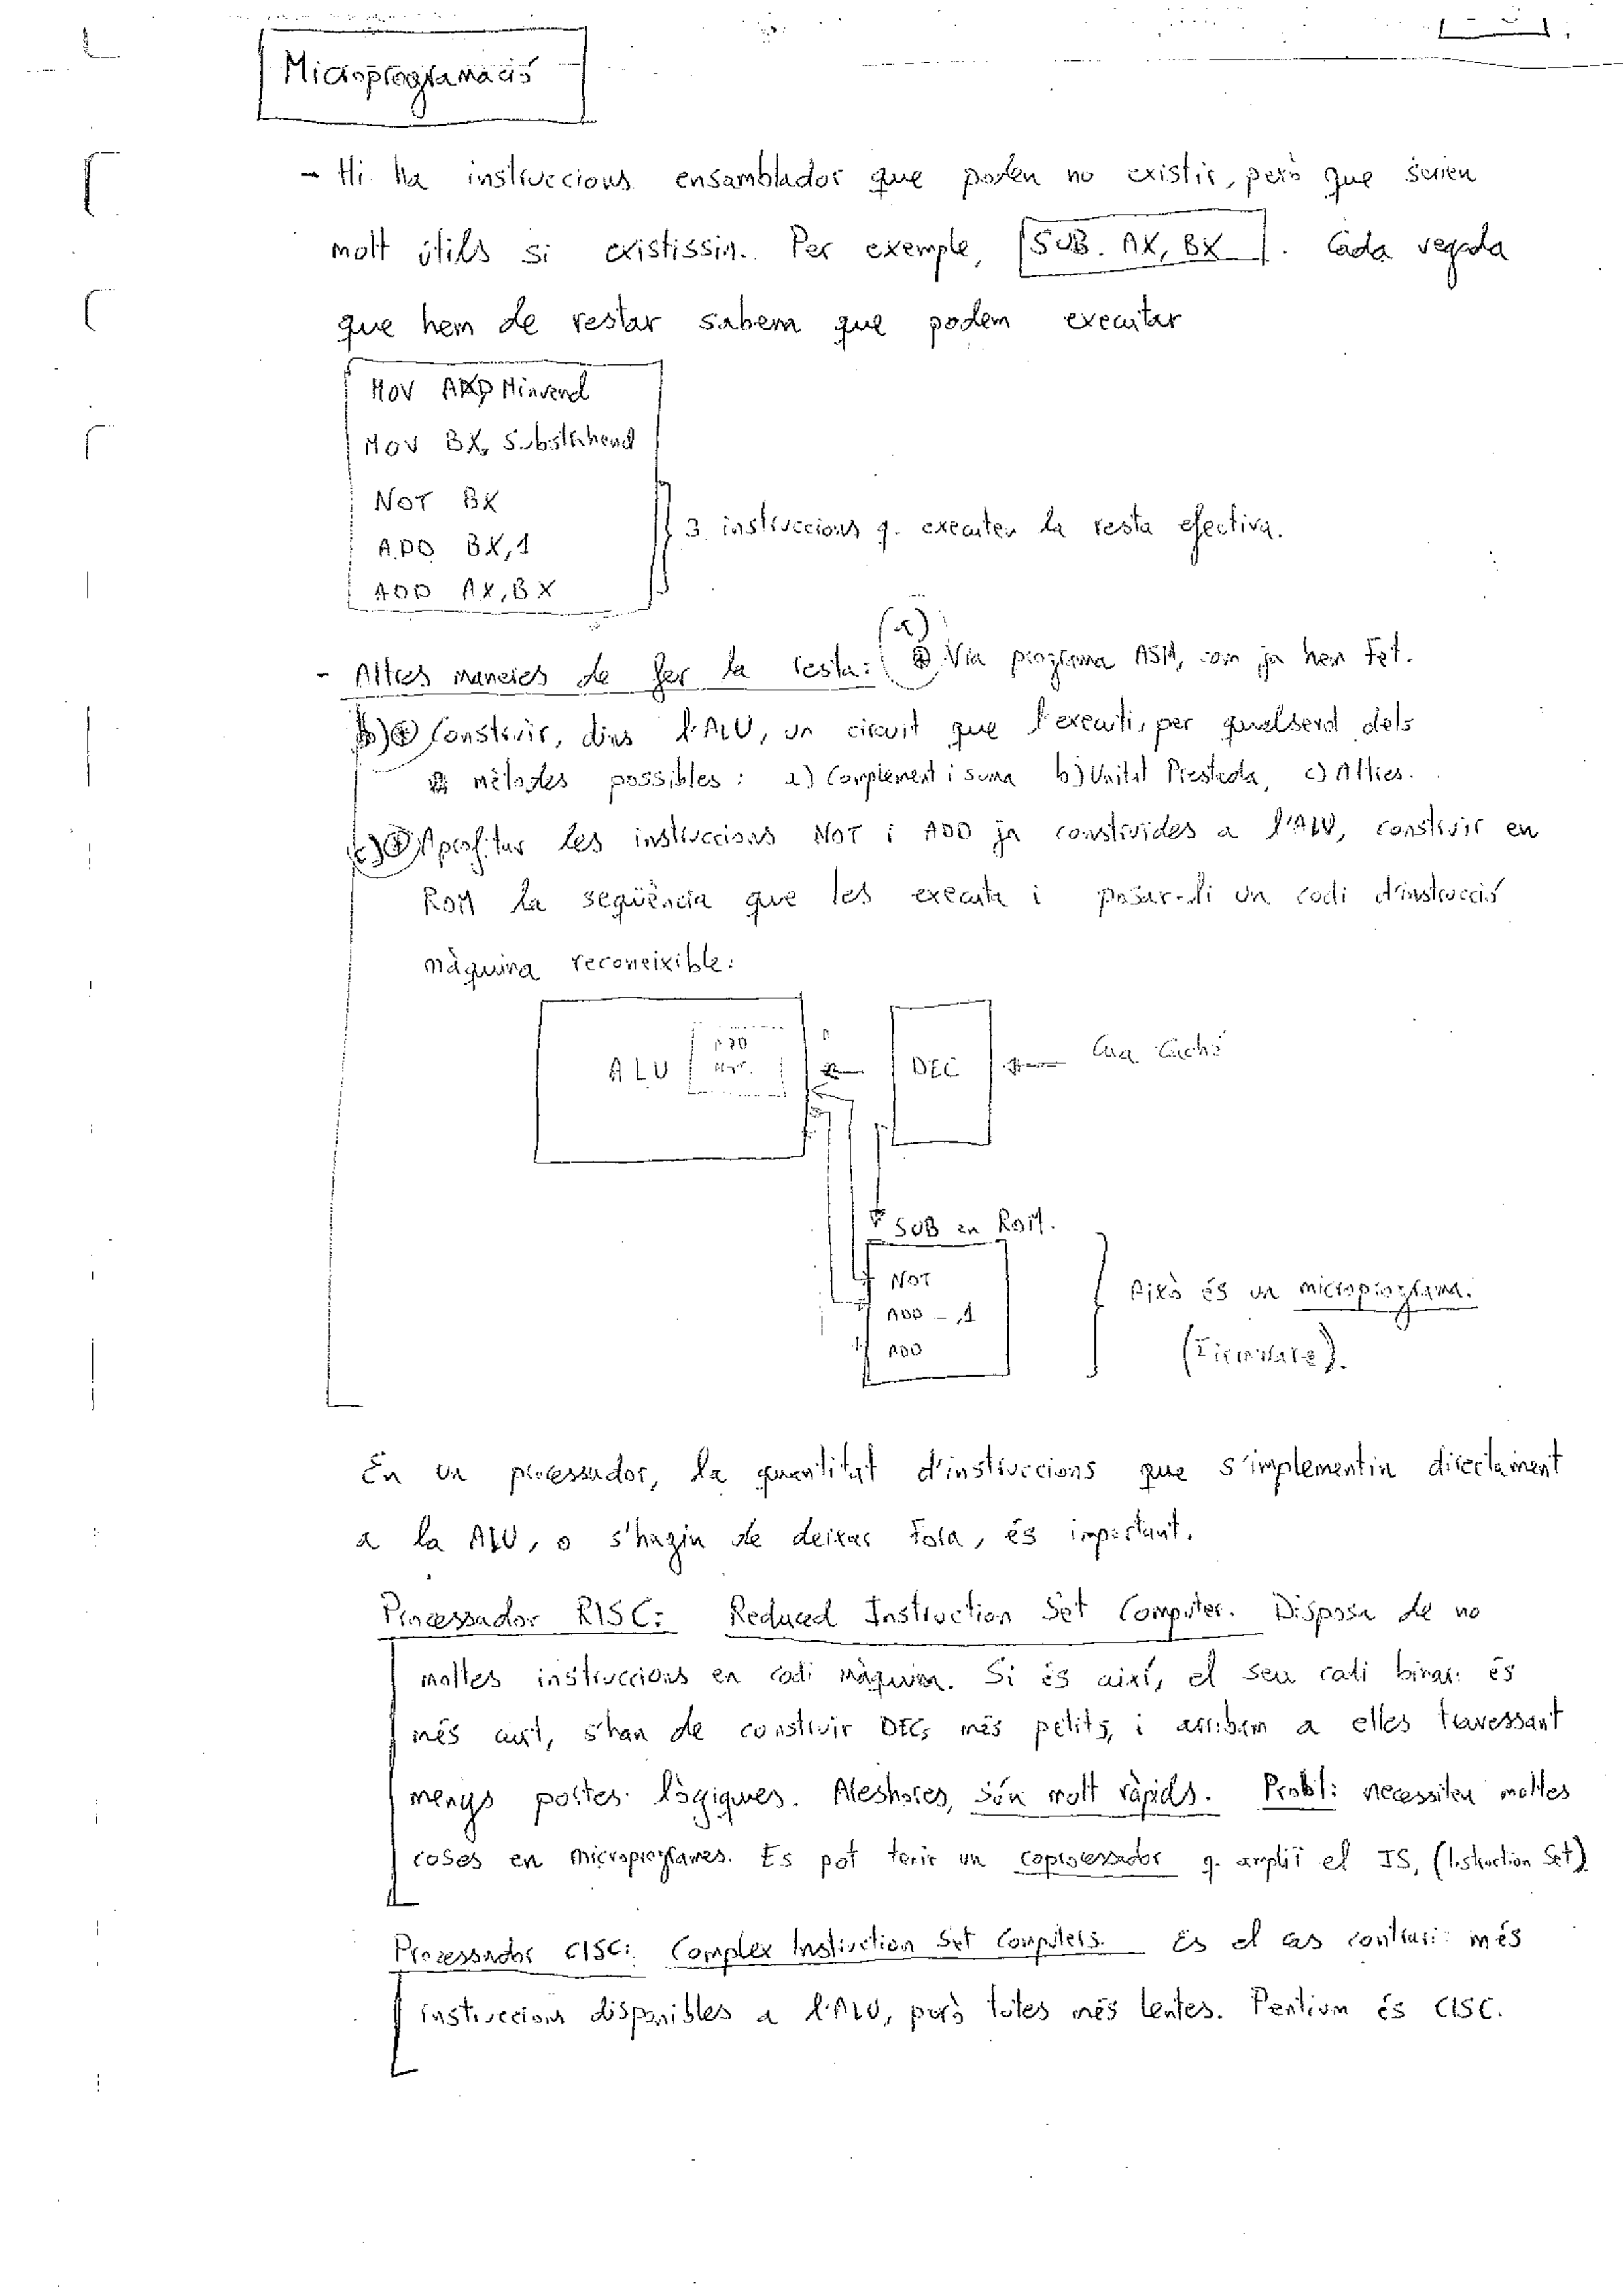 Microprogramació
- Hi ha instruccions ensamblador que poden no existir, però que serien
molt útils si existissin. Per exemple, SUB AX, BX. Cada vegada
que hem de restar sabem que podem executar
MOV AX, Minuend
MOV BX, Substrahend
NOT BX
ADD BX,1
ADD AX,BX
3 instruccions q. executen la resta efectiva.
- Altres maneres de fer la resta: (a) Via programa ASM, com ja hem fet.
b) Construir, dins l'ALU, un circuit que l'executi, per qualsevol dels
mètodes possibles: a) Complement i suma b) Unitat Prestada, c) Altres.
c) Aprofitar les instruccions NOT i ADD ja construides a l'ALU, construir en
ROM la seqüència que les executa i posar-li un codi d'instrucció
màquina reconeixible:
ALU ADD NOT DEC Cua Caché
SUB en ROM.
NOT
ADD -,1
ADD
Això és un microprograma.
(Firmware).
En un processador, la quantitat d'instruccions que s'implementin directament
a la ALU, o s'hagin de deixar fora, és important.
Processador RISC: Reduced Instruction Set Computer. Disposa de no
moltes instruccions en codi màquina. Si és així, el seu codi binari és
més curt, s'han de construir DECs més petits, i arribem a elles travessant
menys portes lògiques. Aleshores, són molt ràpids. Probl: necessiten moltes
coses en microprogrames. Es pot tenir un coprocessador q. amplïi el IS, (Instruction Set)
Processador CISC: Complex Instruction Set Computers. És el cas contrari: més
instruccions disponibles a l'ALU, però totes més lentes. Pentium és CISC.